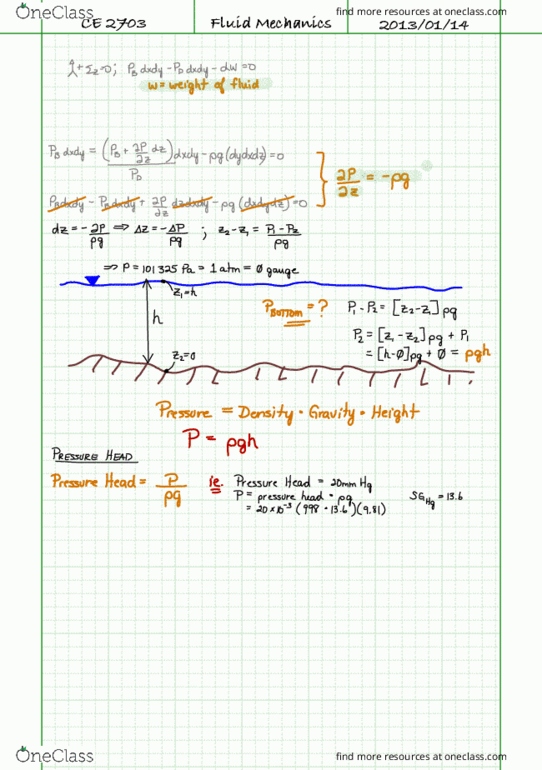 OneClass
find more resources at oneclass.com
CE 2703 Fluid Mechanics 2013/01/14
↑+ Σz=0; P_B dxdy - P_D dxdy - dW = 0
W = weight of fluid
P_B dxdy = (P_B + ∂P/∂z dz) dxdy - ρg(dydxdz) = 0
P_D
P_B dxdy - P_B dxdy + ∂P/∂z dzdxdy - ρg(dxdydz) = 0
∂P/∂z = -ρg
dz = -∂P/ρg ⇒ Δz = -ΔP/ρg ; z₂-z₁ = P₁-P₂/ρg
⇒ P = 101 325 Pa = 1 atm = Ø gauge
z₁=h
h
P_BOTTOM = ?
P₁ - P₂ = [z₂-z₁]ρg
P₂ = [z₁-z₂]ρg + P₁
= [h-Ø]ρg + Ø = ρgh
z₂=0
Pressure = Density · Gravity · Height
P = ρgh
PRESSURE HEAD
Pressure Head = P/ρg
ie. Pressure Head = 20mm Hg
P = pressure head · ρg
= 20 × 10⁻³ (998 · 13.6)(9.81)
SG_Hg = 13.6
OneClass
find more resources at oneclass.com